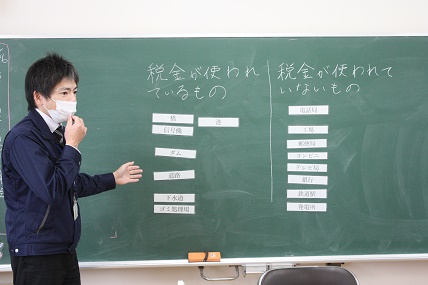 税金が使われ
ているもの
橋
信号機
ダム
道路
下水道
ゴミ処理場
税金が使われて
いないもの
電話局
工場
郵便局
コンビニ
テレビ局
銀行
鉄道駅
発電所